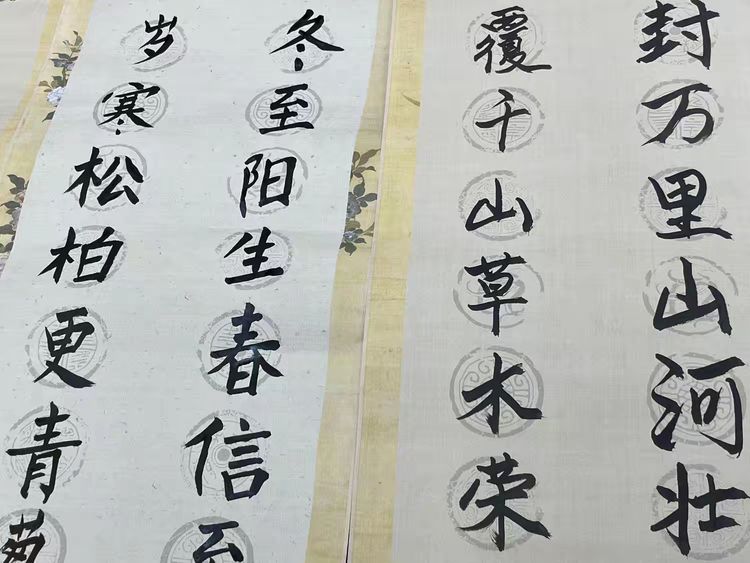 封万里山河壮
覆千山草木荣
冬至阳生春信
岁寒松柏更青